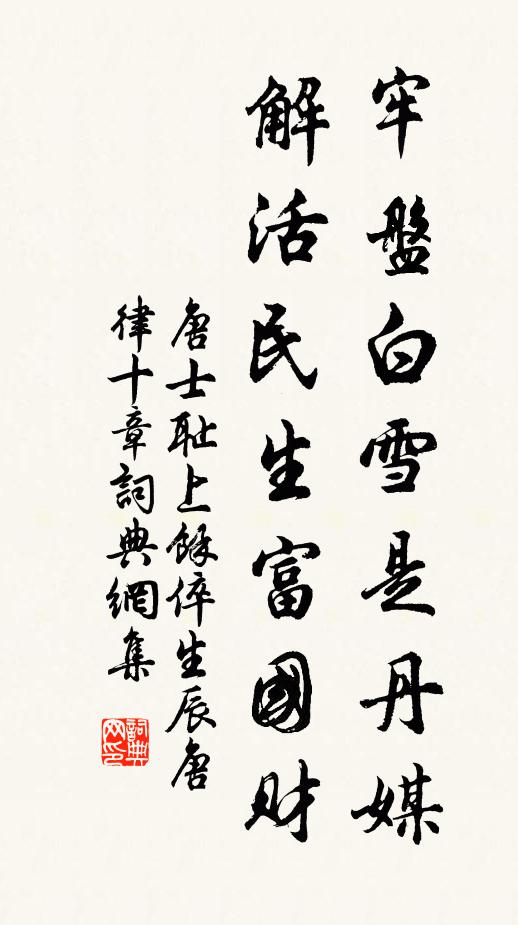 牢盤白雪是丹媒
解活民生富國財
唐士耻上餘倅生辰唐
律十章詞典網集
詞典網印